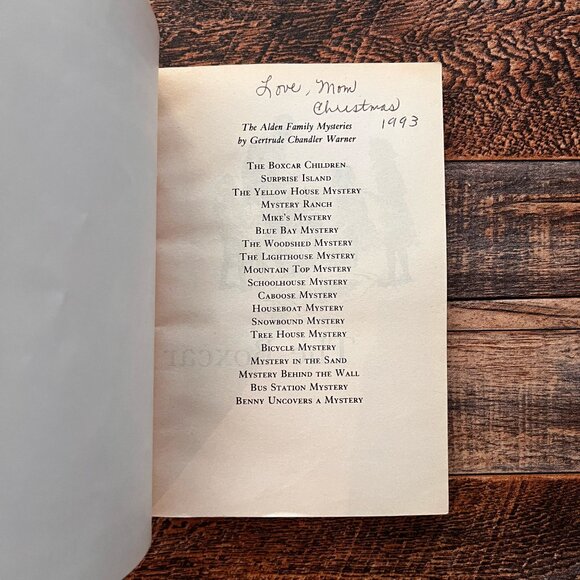 Love, Mom
Christmas
1993
The Alden Family Mysteries
by Gertrude Chandler Warner
THE BOXCAR CHILDREN
SURPRISE ISLAND
THE YELLOW HOUSE MYSTERY
MYSTERY RANCH
MIKE'S MYSTERY
BLUE BAY MYSTERY
THE WOODSHED MYSTERY
THE LIGHTHOUSE MYSTERY
MOUNTAIN TOP MYSTERY
SCHOOLHOUSE MYSTERY
CABOOSE MYSTERY
HOUSEBOAT MYSTERY
SNOWBOUND MYSTERY
TREE HOUSE MYSTERY
BICYCLE MYSTERY
MYSTERY IN THE SAND
MYSTERY BEHIND THE WALL
BUS STATION MYSTERY
BENNY UNCOVERS A MYSTERY